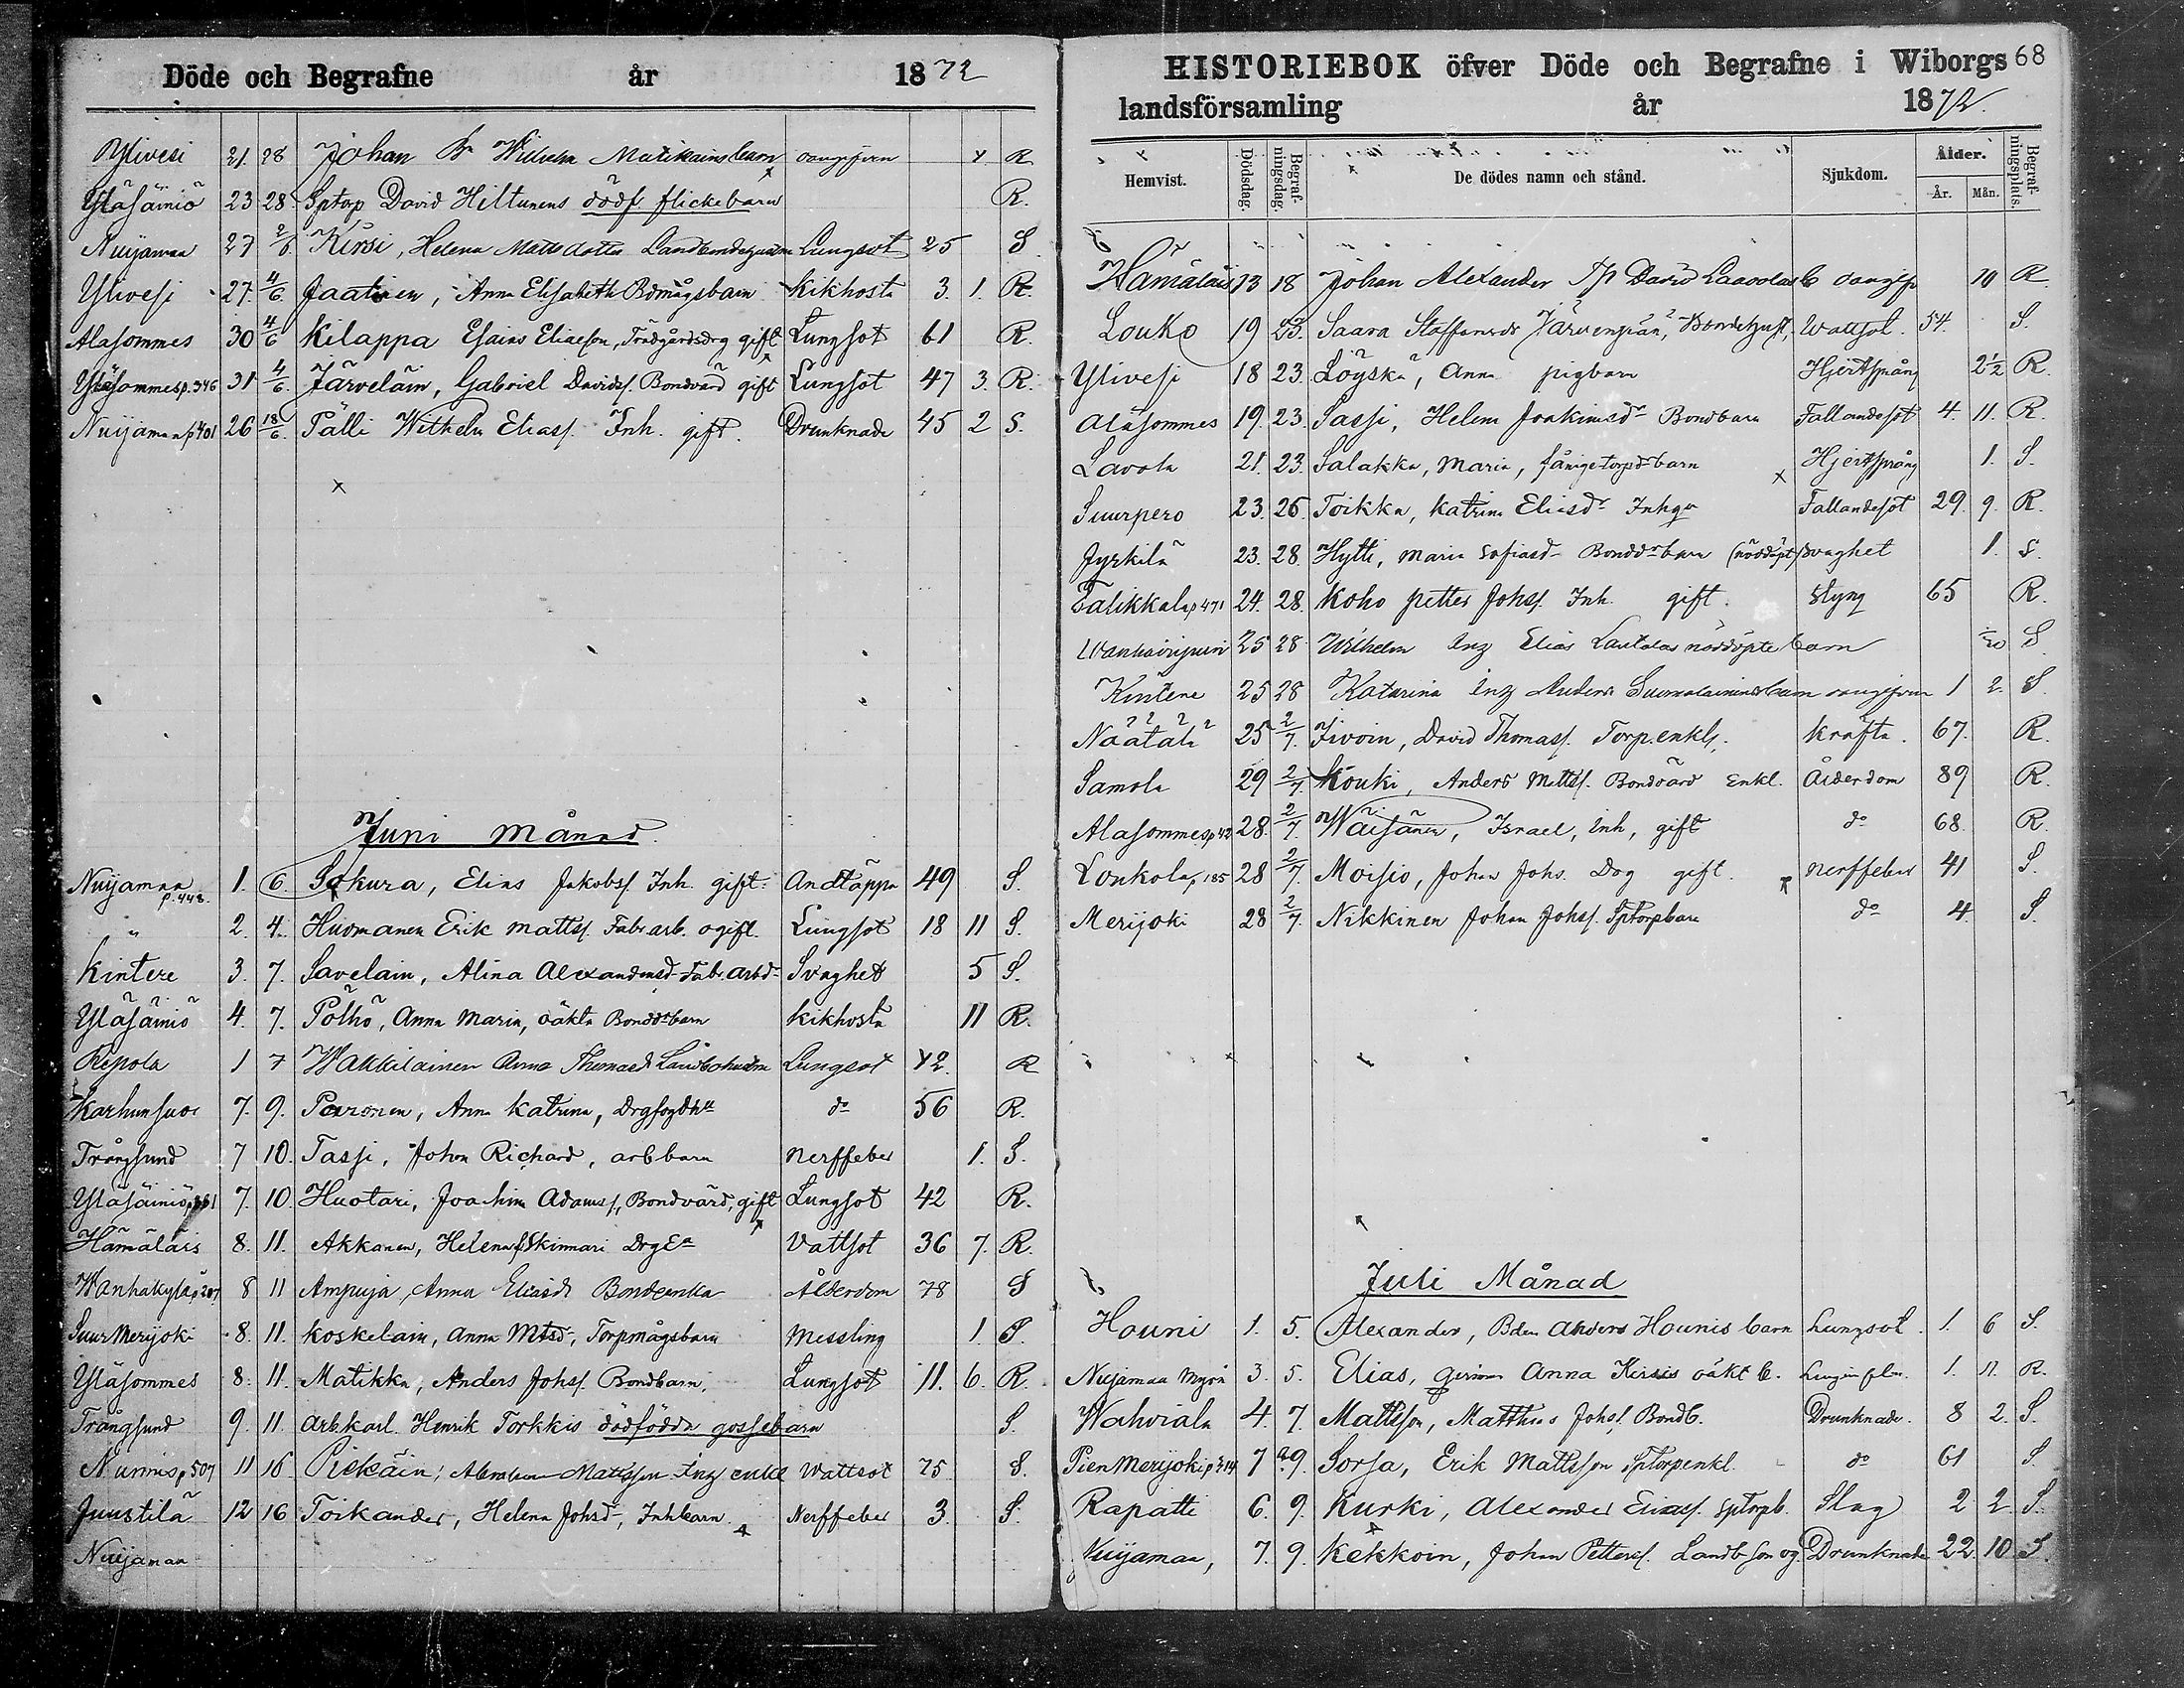 Döde och Begrafne år 1872
Ylivesi 21 28 Johan Wilhelm Matikains barn oangifven R
Yläsäiniö 23 28 Sptorp David Hiltunens dödf. flickebarn R.
Nuijamaa 27 2/6 Kirsi, Helena Matts dotter Lungsot 25 S
Ylivesi 27 4/6 Jaatinen, Anna Elisabeth Bdmågsbarn Kikhosta 3. 1. R.
Alasommes 30 4/6 Kilappa Esaias Eliasson, Trädgårdsdrg gift Lungsot 61 R.
Yläsommes p. 346 31 4/6. Järveläin, Gabriel Davidss. Bondvärd gift Lungsot 47 3. R.
Nuijamaa p 401 26 18/6. Pälli Wilhelm Eliass. Inh. gift. Drunknade 45 2 S.
Juni Månad.
Nuijamaa p. 448. 1. 6. Sakura, Elias Jakobss. Inh. gift. Andtäppa 49 S.
" 2. 4. Huomanen Erik Mattss. Fabr. arb. ogift. Lungsot 18 11 S.
Kintere 3. 7. Savelain, Alina Alexandersd. Fab. arb. Svaghet 5 S.
Yläsäiniö 4. 7. Pölhö, Anna Maria, oäkta Bonddr barn Kikhosta 11 R.
Repola 1 7 Wakkilainen Anna Thomasd. Lungsot 42. R
Karhunsuo 7. 9. Paronen, Anna Katrina, do 56 R.
Trångsund 7 10. Tassi, Johan Richard, arb barn Nerffeber 1. S.
Yläsäiniö p. 361 7. 10. Huotari, Joachim Adamss., Bondvärd, gift Lungsot 42 R.
Hämäläis 8. 11. Akkanen, Helena f. Skinnari Vattsot 36 7. R.
Wanhakylä p. 207 8 11 Ampuja, Anna Eliasdr Bondeenka Ålderdom 78 S
Suur Merijoki 8. 11. Koskelain, Anna Mtsd, Torpmågsbarn Messling 1. S.
Yläsommes 8. 11. Matikka, Anders Johss. Bondbarn. Lungsot 11. 6. R.
Trångsund 9. 11. Arb. karl Henrik Torkkis dödfödda gossebarn S.
Nurmis p 507 11 16 Piekäin, Abraham Mattsson Inh enkl Wattsot 75 S.
Juustilä 12 16 Toikander, Helena Johsd., Inhbarn. Nerffeber 3. S.
Nuijamaa
HISTORIEBOK öfver Döde och Begrafne i Wiborgs 68
landsförsamling år 1872.
Hemvist. Dödsdag. Begrafningsdag. De dödes namn och stånd. Sjukdom. Ålder. År. Mån. Begrafningsplats.
Hämäläis 13 18 Johan Alexander David Laavolas b oangif 10 R
Louko 19 23. Saara Staffansdr Järvenpään, Bondehust. Wattsot. 54. S.
Ylivesi 18 23. Löyskä, Anna pigbarn Hjertsprång 2 1/2 R.
Alasommes 19. 23. Sassi, Helena Joakimsdr Bondbarn Fallandesot 4. 11. R.
Lavola 21. 23. Salakka, Maria, barn Hjertsprång 1. S.
Suurpero 23. 26. Toikka, Katrina Eliasdr Fallandesot 29. 9. R.
Jyrkilä 23. 28. Hytti, Maria Sofiasd. Bonddr barn (nöddöpt) svaghet 1. S.
Talikkala p 471 24. 28. Koho Petter Johss. Inh. gift. Styng 65 R.
25 28 Wilhelm Inh Elias Lautalas nöddöpte barn S
Kintere 25 28 Katarina Inh Anders Suomalainens barn oangifven 1 2. S.
Näätälä 25 2/7. Iivoin, David Thomass. Torp. enkl. Kräfta. 67. R.
Samola 29 2/7. Kouki, Anders Mattss. Bondvärd Enkl. Ålderdom 89 R.
Alasommes p 42 28. 2/7. Wäisänen, Israel, Inh, gift do 68. R.
Lonkola p. 185 28 2/7. Moisio, Johan Johs. Drg gift. Nerffeber 41 S.
Merijoki 28 2/7. Nikkinen Johan Johss. Sptorpbarn do 4. S.
Juli Månad
Houni 1. 5. Alexander, Bden Anders Hounis barn Lungsot. 1. 6 S.
Nuijamaa 3. 5. Elias, Anna Kirsis oäkt b. 1. 11. R.
Wahviala 4. 7. Mattsson, Matthias Johss. Bondb. Drunknade. 8 2. S.
Pien Merijoki p 214 7 9. Sorsa, Erik Mattsson Sptorpenkl. do 61 S.
Rapatti 6. 9. Kurki, Alexander Eliass. sptorpb. Slag 2 2. S.
Nuijamaa, 7. 9. Kekkoin, Johan Petterss. Landb. son og Drunknade 22. 10. S.